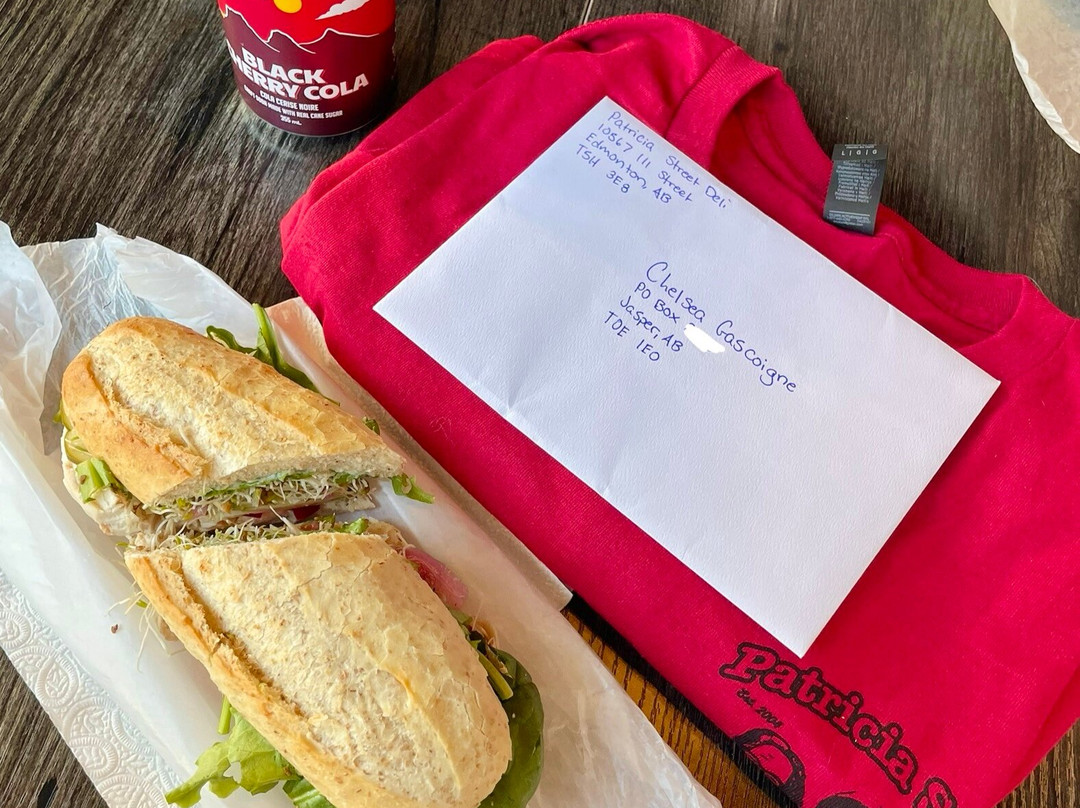 BLACK
CHERRY COLA
COLA CERISE NOIRE
MADE WITH REAL CANE SUGAR
355 mL
L | G | G
Patricia Street Deli
10567 111 Street
Edmonton, AB
T5H 3E8
Chelsea Gascoigne
PO Box
Jasper, AB
T0E 1E0
Patricia S
Est. 2004